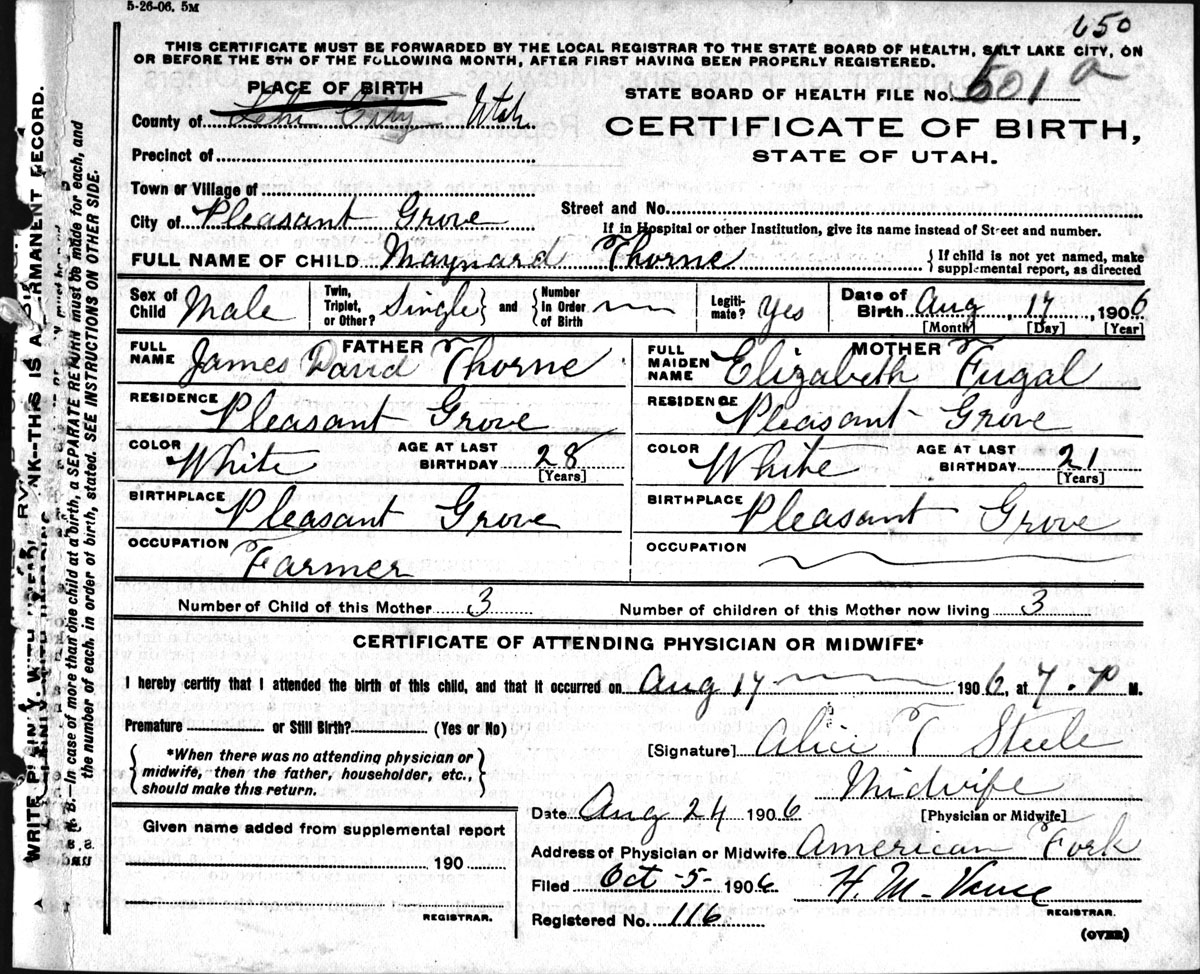 5-26-06. 5M
650
THIS CERTIFICATE MUST BE FORWARDED BY THE LOCAL REGISTRAR TO THE STATE BOARD OF HEALTH, SALT LAKE CITY, ON
OR BEFORE THE 5TH OF THE FOLLOWING MONTH, AFTER FIRST HAVING BEEN PROPERLY REGISTERED.
PLACE OF BIRTH
STATE BOARD OF HEALTH FILE No. 501 a
County of Lehi City Utah
CERTIFICATE OF BIRTH,
STATE OF UTAH.
Precinct of
Town or Village of
Street and No.
City of Pleasant Grove
If in Hospital or other Institution, give its name instead of Street and number.
FULL NAME OF CHILD Maynard Thorne
If child is not yet named, make
supplemental report, as directed
Sex of Child Male Twin, Triplet, or Other? Single and Number In Order of Birth Legitimate? Yes Date of Birth Aug, 17, 1906
[Month] [Day] [Year]
FATHER
FULL NAME James David Thorne
MOTHER
FULL MAIDEN NAME Elizabeth Fugal
RESIDENCE Pleasant Grove
RESIDENCE Pleasant Grove
COLOR White AGE AT LAST BIRTHDAY 28 [Years]
COLOR White AGE AT LAST BIRTHDAY 21 [Years]
BIRTHPLACE Pleasant Grove
BIRTHPLACE Pleasant Grove
OCCUPATION Farmer
OCCUPATION
Number of Child of this Mother 3 Number of children of this Mother now living 3
CERTIFICATE OF ATTENDING PHYSICIAN OR MIDWIFE*
I hereby certify that I attended the birth of this child, and that it occurred on Aug 17 1906, at 7. P M.
Premature or Still Birth? (Yes or No)
[Signature] Alice T Steele
*When there was no attending physician or
midwife, then the father, householder, etc.,
should make this return.
Midwife
[Physician or Midwife]
Date Aug 24 1906
Given name added from supplemental report
190
REGISTRAR.
Address of Physician or Midwife American Fork
Filed Oct -5- 1906 H. M. Vance
REGISTRAR.
Registered No. 116
(OVER)
N. B. In case of more than one child at a birth, a SEPARATE RETURN must be made for each, and
the number of each, in order of birth, stated. SEE INSTRUCTIONS ON OTHER SIDE.
THIS IS A PERMANENT RECORD.